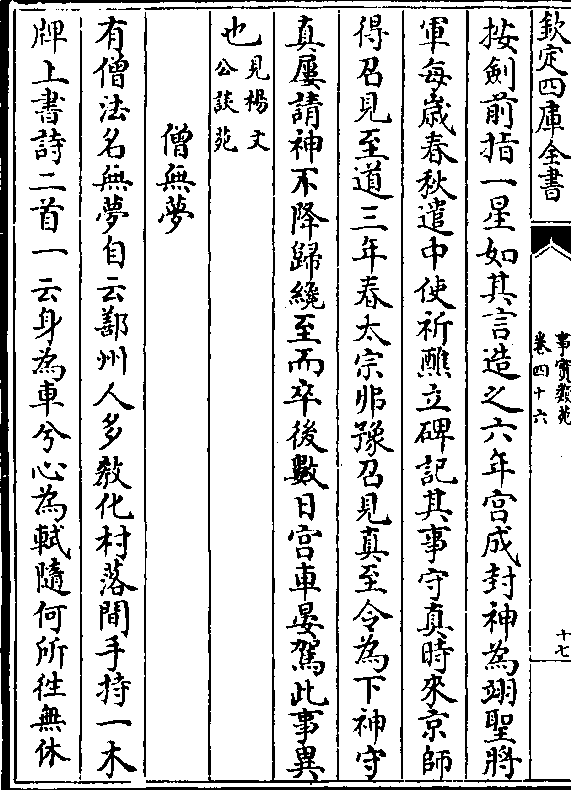 欽定四庫全書
事實類苑
卷四十六
十七
按劍前指一星如其言造之六年宮成封神為翊聖將
軍每歲春秋遣中使祈醮立碑記其事守真時來京師
得召見至道三年春太宗弗豫召見真至令為下神守
真屢請神不降歸纔至而卒後數日宮車晏駕此事異
也見楊文
公談苑
僧無夢
有僧法名無夢自云鄯州人多教化村落間手持一木
牌上書詩二首一云身為車兮心為軾隨何所徃無休